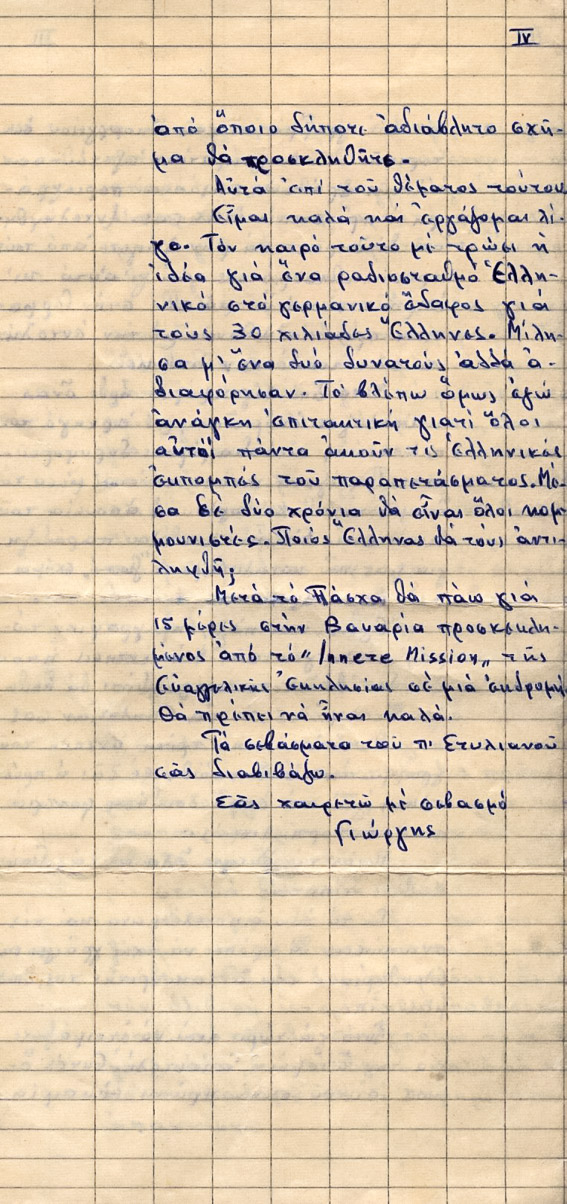 IV
ἀπό ὅποιο δήποτε ἀδιάβλητο σχῆ-
μα θά προσκληθῆτε.
Αὐτά ἐπί τοῦ θέματος τούτου.
Εἶμαι καλά καί ἐργάζομαι λί-
γο. Τόν καιρό τοῦτο μέ τρώει ἡ
ἰδέα γιά ἕνα ραδιοσταθμό Ἑλλη-
νικό στό γερμανικό ἔδαφος γιά
τούς 30 χιλιάδες Ἕλληνες. Μίλη-
σα μ' ἕνα δυό δυνατούς ἀλλά ἀ-
διαφόρησαν. Τό βλέπω ὅμως ἐγώ
ἀνάγκη ἐπιτακτική γιατί ὅλοι
αὐτοί πάντα ἀκοῦν τίς ἑλληνικές
ἐκπομπές τοῦ παραπετάσματος. Μέ-
σα σέ δύο χρόνια θά εἶναι ὅλοι κομ-
μουνιστές. Ποιός Ἕλληνας θά τούς ἀντι-
ληφθῆ;
Μετά τό Πάσχα θά πάω γιά
15 μέρες στήν Βαυαρία προσκεκλη-
μένος ἀπό τό "Innere Mission" τῆς
Εὐαγγελικῆς Ἐκκλησίας σέ μιά ἐκδρομή.
Θά πρέπει νά ἦναι καλά.
Τά σεβάσματα τοῦ π. Στυλιανοῦ
σᾶς διαβιβάζω.
Σᾶς χαιρετῶ μέ σεβασμό
Γιώργης